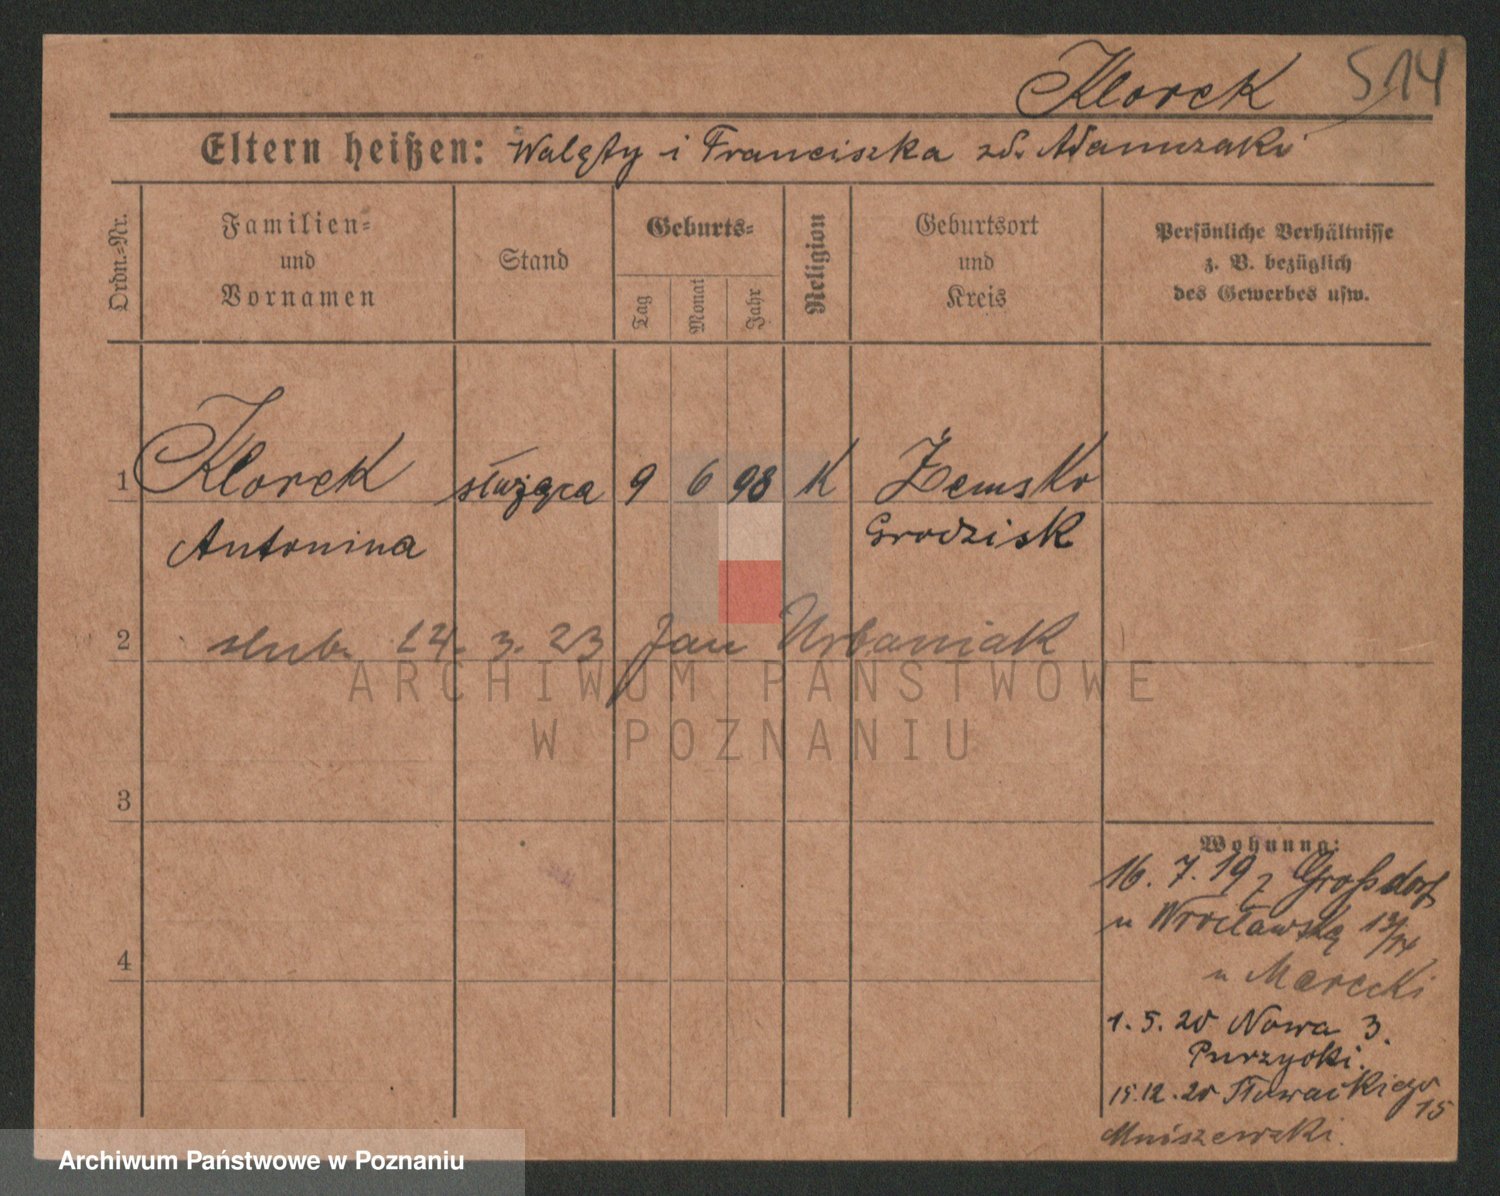 Klorek 514
Eltern heißen: Walęty i Franciszka zd. Adamczaki
Ordn.-Nr.
Familien-
und
Vornamen
Stand
Geburts-
Tag
Monat
Jahr
Religion
Geburtsort
und
Kreis
Persönliche Verhältnisse
z. B. bezüglich
des Gewerbes usw.
1 Klorek służąca 9 6 98 K Żemsko
Antonina Grodzisk
2 slub. 24. 3. 23 Jan Urbaniak
ARCHIWUM PAŃSTWOWE
W POZNANIU
3
4
Wohnung:
16. 7. 19 z Großdorf
u Wrocławska 13/14
u Marecki
1. 5. 20 Nowa 3.
Purzycki.
15.12.20 Słowackiego
15
Mniszewski.
Archiwum Państwowe w Poznaniu